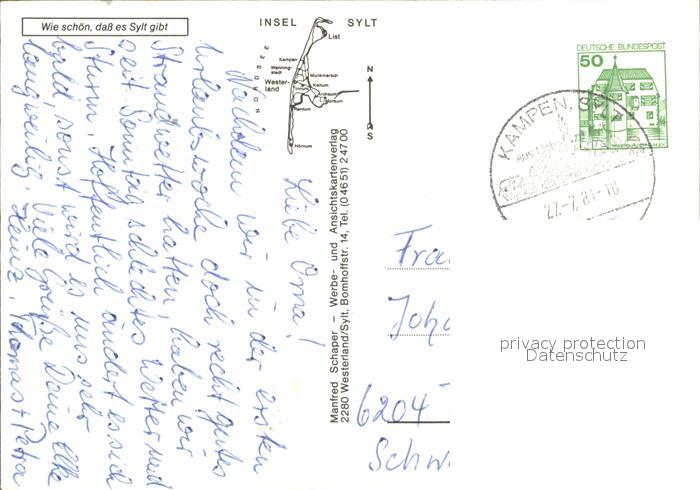 Wie schön, daß es Sylt gibt
INSEL SYLT
List
Kampen
Wenning-
stedt
Munkmarsch
Wester-
land
Keitum
Archsum
Morsum
Rantum
Hörnum
NORDSEE
N
S
DEUTSCHE BUNDESPOST
50
KAMPEN,
27.-7.81-18
Liebe Oma!
Nachdem wir in der ersten
Urlaubswoche doch recht gutes
Strandwetter hatten, haben wir
seit Sonntag schlechtes Wetter und
Sturm. Hoffentlich ändert es sich
bald, sonst wird es uns sehr
langweilig. Viele Grüße Deine Elke
Heinz, Thomas + Petra
Manfred Schaper – Werbe- und Ansichtskartenverlag
2280 Westerland/Sylt, Bomhoffstr. 14, Tel. (0 46 51) 2 47 00
Fra
Joha
6204
Schw
privacy protection
Datenschutz